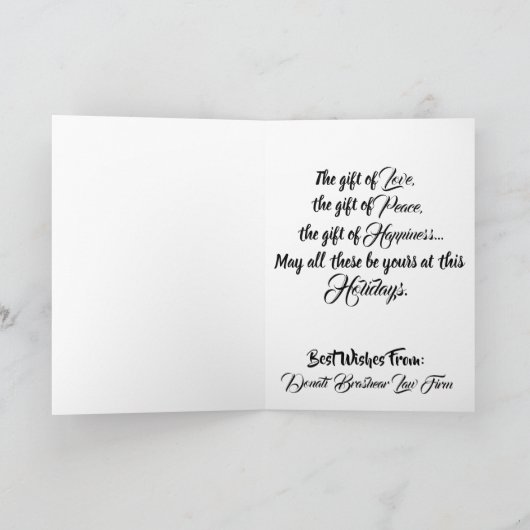 The gift of Love,
the gift of Peace,
the gift of Happiness...
May all these be yours at this
Holidays.
Best Wishes From:
Donati Brashear Law Firm